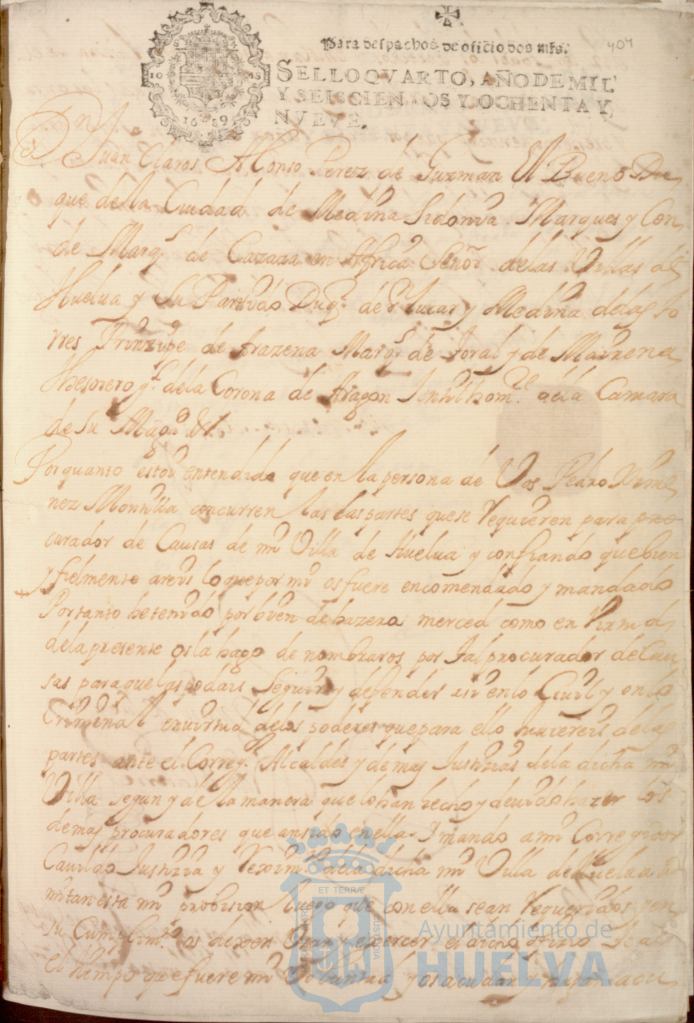 404
Para despachos de oficio dos mrs.
SELLO QVARTO, AÑO DE MIL
Y SEISCIENTOS Y OCHENTA Y
NVEVE.
1689
Dn Juan Claros Alonso Perez de Guzman El Bueno Du
que de la Ciudad de Medina Sidonia Marques y Con
de Marqs de Cazaza en Africa Señor de las Villas de
Huelua y Su Partido Duqe de S Lucar y Medina de las To
rres Prinzipe de Arazena Marqs de Toral y de Mairena
thesorero gl de la Corona de Aragon Jentilhome de la Camara
de Su Magd &a
Por quanto estoy entendido que en la persona de Vos Pedro Xime
nez Montilla concurren las partes que se requieren para pro
curador de Causas de mi Villa de Huelua y confiando que bien
y fielmente areis lo que por mi os fuere encomendado y mandado
Por tanto he tenido por bien de hazeros merced como en Virtud
de la presente os la hago de nombraros por tal procurador de Cau
sas para que las podais Seguir y defender asi en lo Ciuil y en lo
Criminal en virtud de los poderes que para ello tuuiereis de las
partes ante el Corregr Alcaldes y demas Justizias de la dicha mi
Villa Segun y de la manera que lo han hecho y deuido hazer los
demas procuradores que an sido en ella Y mando a mi Corregidor
Cauildo Justizia y Reximto de la dicha mi Villa de Huelua
mi prouision luego que con ella sean requeridos y en
Su Cumplimto os dexen Usar y exercer el dicho ofizio
el tiempo que fuere mi Voluntad y os acudan y hagan acu
ET TERRÆ
Ayuntamiento de
HUELVA